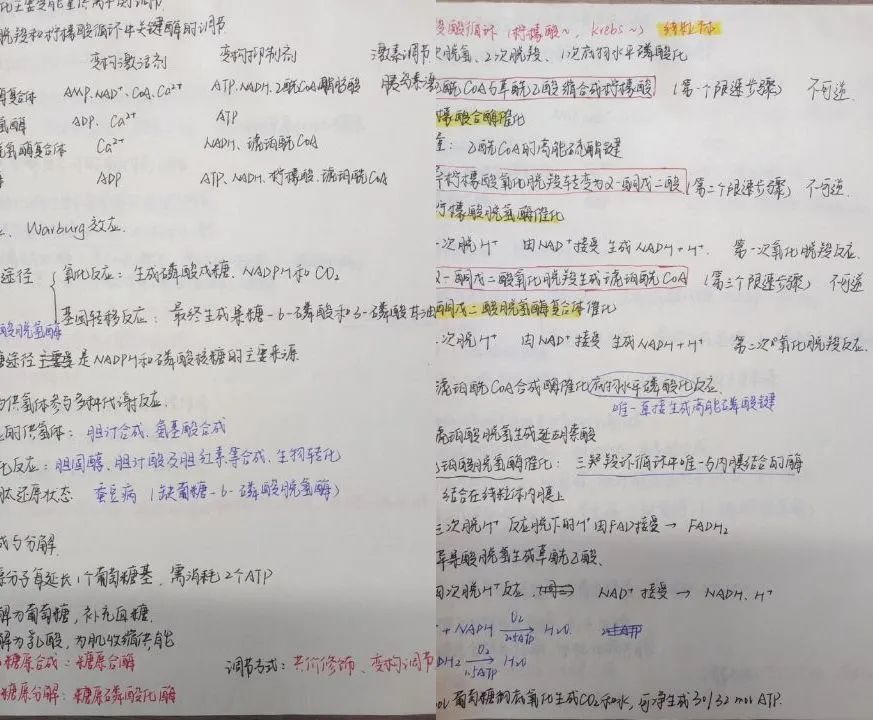 脱羧和柠檬酸循环中关键酶的调节
变构激活剂 变构抑制剂 激素调节
复合体 AMP、NAD⁺、CoA、Ca²⁺ ATP、NADH、乙酰CoA、脂肪酸 胰岛素激
氢酶 ADP、Ca²⁺ ATP
氢酶复合体 Ca²⁺ NADH、琥珀酰CoA
ADP ATP、NADH、柠檬酸、琥珀酰CoA
、Warburg效应.
途径 氧化反应：生成磷酸戊糖、NADPH和CO₂
基团转移反应：最终生成果糖-6-磷酸和3-磷酸甘油
酸脱氢酶
途径主要是NADPH和磷酸核糖的主要来源
为供氢体参与多种代谢反应.
的供氢体：胆汁合成、氨基酸合成
化反应：胆固醇、胆汁酸及胆红素等合成、生物转化
肽还原状态 蚕豆病（缺葡糖-6-磷酸脱氢酶）
成与分解.
原分子每延长1个葡萄糖基，需消耗2个ATP
解为葡萄糖，补充血糖.
解为乳酸，为肌收缩供能
糖原合成：糖原合酶 调节方式：共价修饰、变构调节
糖原分解：糖原磷酸化酶
羧酸循环（柠檬酸~，krebs~） 线粒体
次脱氢、2次脱羧、1次底物水平磷酸化
酰CoA与草酰乙酸缩合成柠檬酸（第一个限速步骤） 不可逆.
檬酸合酶催化
：乙酰CoA的高能硫酯键
异柠檬酸氧化脱羧转变为α-酮戊二酸（第二个限速步骤） 不可逆.
柠檬酸脱氢酶催化
一次脱H⁺ 由NAD⁺接受 生成NADH+H⁺. 第一次氧化脱羧反应.
α-酮戊二酸氧化脱羧生成琥珀酰CoA（第三个限速步骤） 不可逆
酮戊二酸脱氢酶复合体催化
次脱H⁺ 由NAD⁺接受 生成NADH+H⁺ 第二次氧化脱羧反应.
琥珀酰CoA合成酶催化底物水平磷酸化反应
唯一直接生成高能磷酸键
琥珀酸脱氢生成延胡索酸
珀酸脱氢酶催化：三羧酸循环中唯一与内膜结合的酶
结合在线粒体内膜上
三次脱H⁺反应脱下的H⁺由FAD接受→FADH₂
苹果酸脱氢生成草酰乙酸.
四次脱H⁺反应. NAD⁺接受→NADH.H⁺
+NADH O₂ 2.5ATP H₂O. 2.5ATP
DH₂ O₂ 1.5ATP H₂O
mol葡萄糖彻底氧化生成CO₂和水，可净生成30/32 mol ATP.